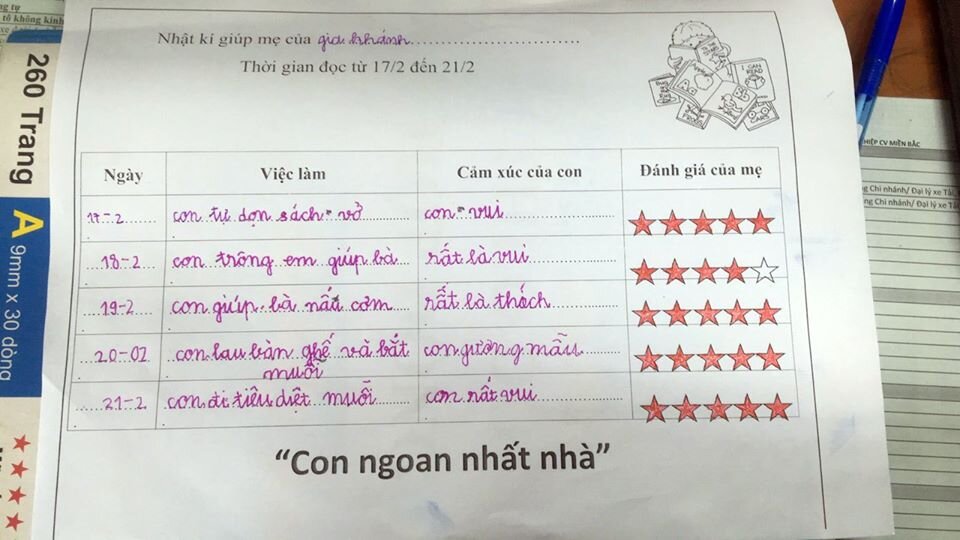 Nhật kí giúp mẹ của gia khánh
Thời gian đọc từ 17/2 đến 21/2
Ngày Việc làm Cảm xúc của con Đánh giá của mẹ
17-2 con tự dọn sách vở con vui
18-2 con trông em giúp bà rất là vui
19-2 con giúp bà nấu cơm rất là thích
20-02 con lau bàn ghế và bắt con gương mẫu
muỗi
21-2 con đi tiêu diệt muỗi con rất vui
“Con ngoan nhất nhà”
260 Trang
A
9mm x 30 dòng
tô không kính
I CAN
READ
FROGS
CARS
HIỆP CV MIỀN BẮC
ng Chi nhánh/ Đại lý xe Tải
ng Chi nhánh/ Đại lý xe Tải